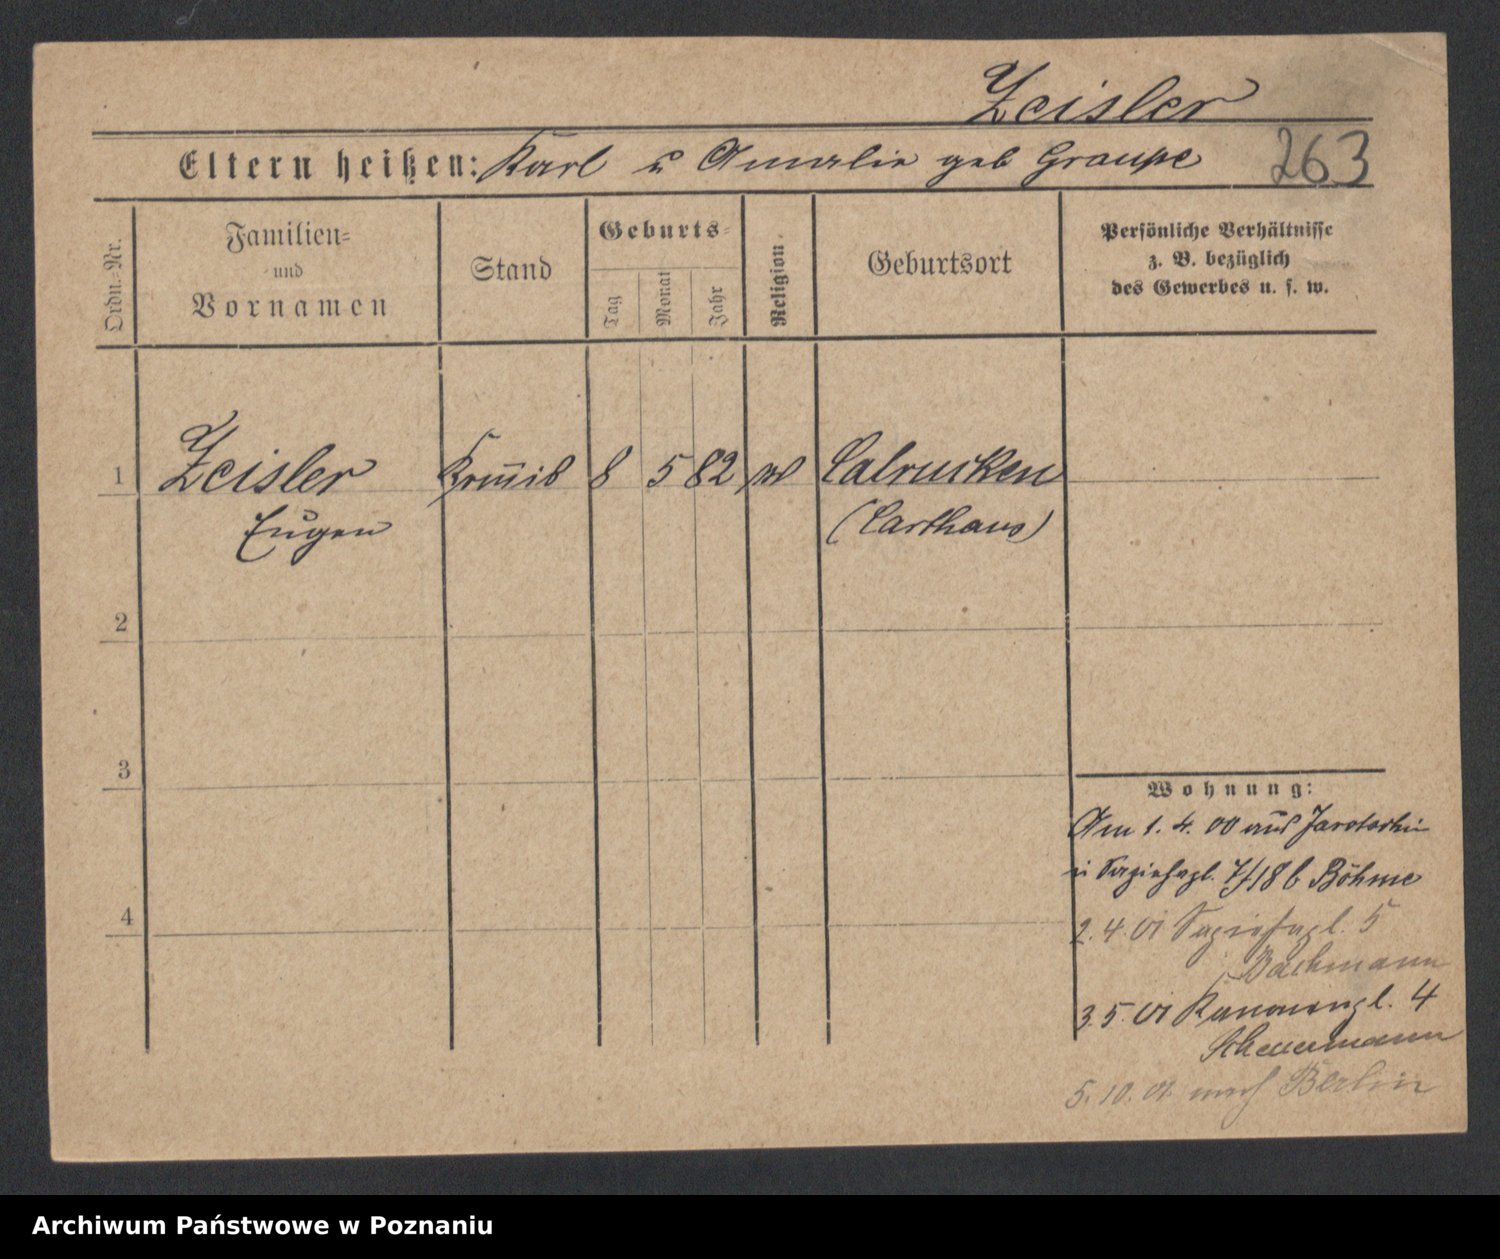 Zeisler
Eltern heißen: Karl u Amalie geb Graupe 263
Ordn.=Nr.
Familien=
und
Vornamen
Stand
Geburts=
Tag
Monat
Jahr
Religion.
Geburtsort
Persönliche Verhältnisse
z. B. bezüglich
des Gewerbes u. s. w.
1 Zeisler 8 5 82
Eugen (Carthaus)
2
3
4
Wohnung:
Am 1. 4. 00 aus Jarotschin
Böhme
2. 4. 01 Sapiehapl. 5
Bachmann
3. 5. 01 Kanonenpl. 4
Scheuermann
5. 10. 01 nach Berlin
Archiwum Państwowe w Poznaniu